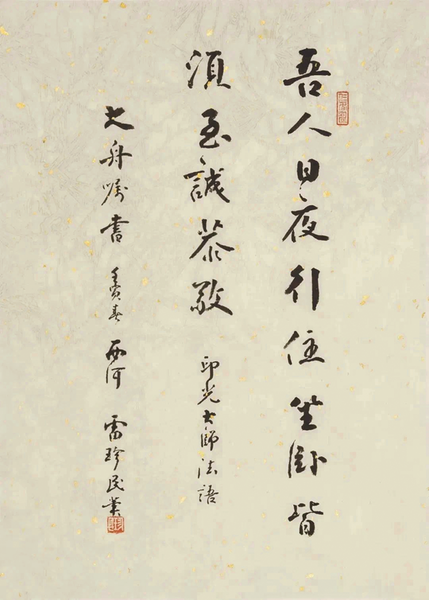 吾人日夜行住坐卧皆
須至誠恭敬 印光大師法語
大舟嘱書 壬寅春 西河 雷珍民